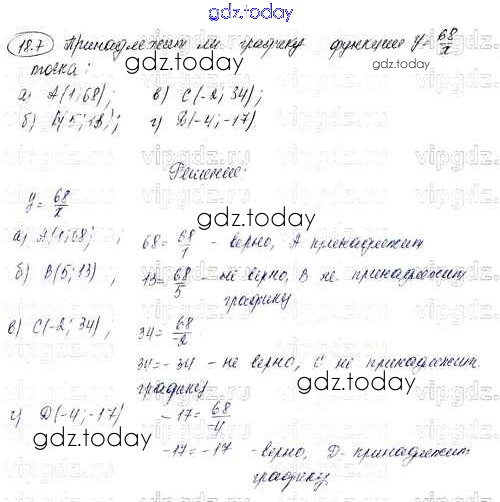 gdz.today
18.7 Принадлежит ли графику функции y = 68/x
точка:
а) A(1; 68); в) C(-2; 34);
б) B(5; 13); г) D(-4; -17).
gdz.today
Решение:
y = 68/x
gdz.today
а) A(1; 68); 68 = 68/1 - верно, A принадлежит
б) B(5; 13), 13 = 68/5 - не верно, B не принадлежит
графику
в) C(-2; 34), 34 = 68/-2
gdz.today
34 = -34 - не верно, C не принадлежит
графику
г) D(-4; -17) -17 = 68/-4
gdz.today
-17 = -17 - верно, D - принадлежит
графику